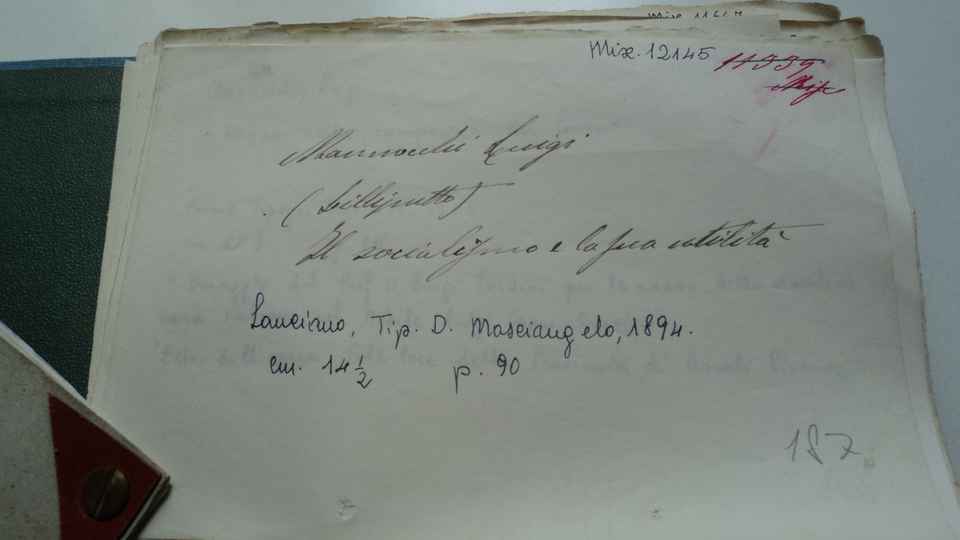 Misc. 12145
Mannocchi Luigi
(Lilliputto)
Il socialismo e la sua utilità
Lanciano, Tip. D. Masciangelo, 1894.
cm. 14 1/2 p. 90
187